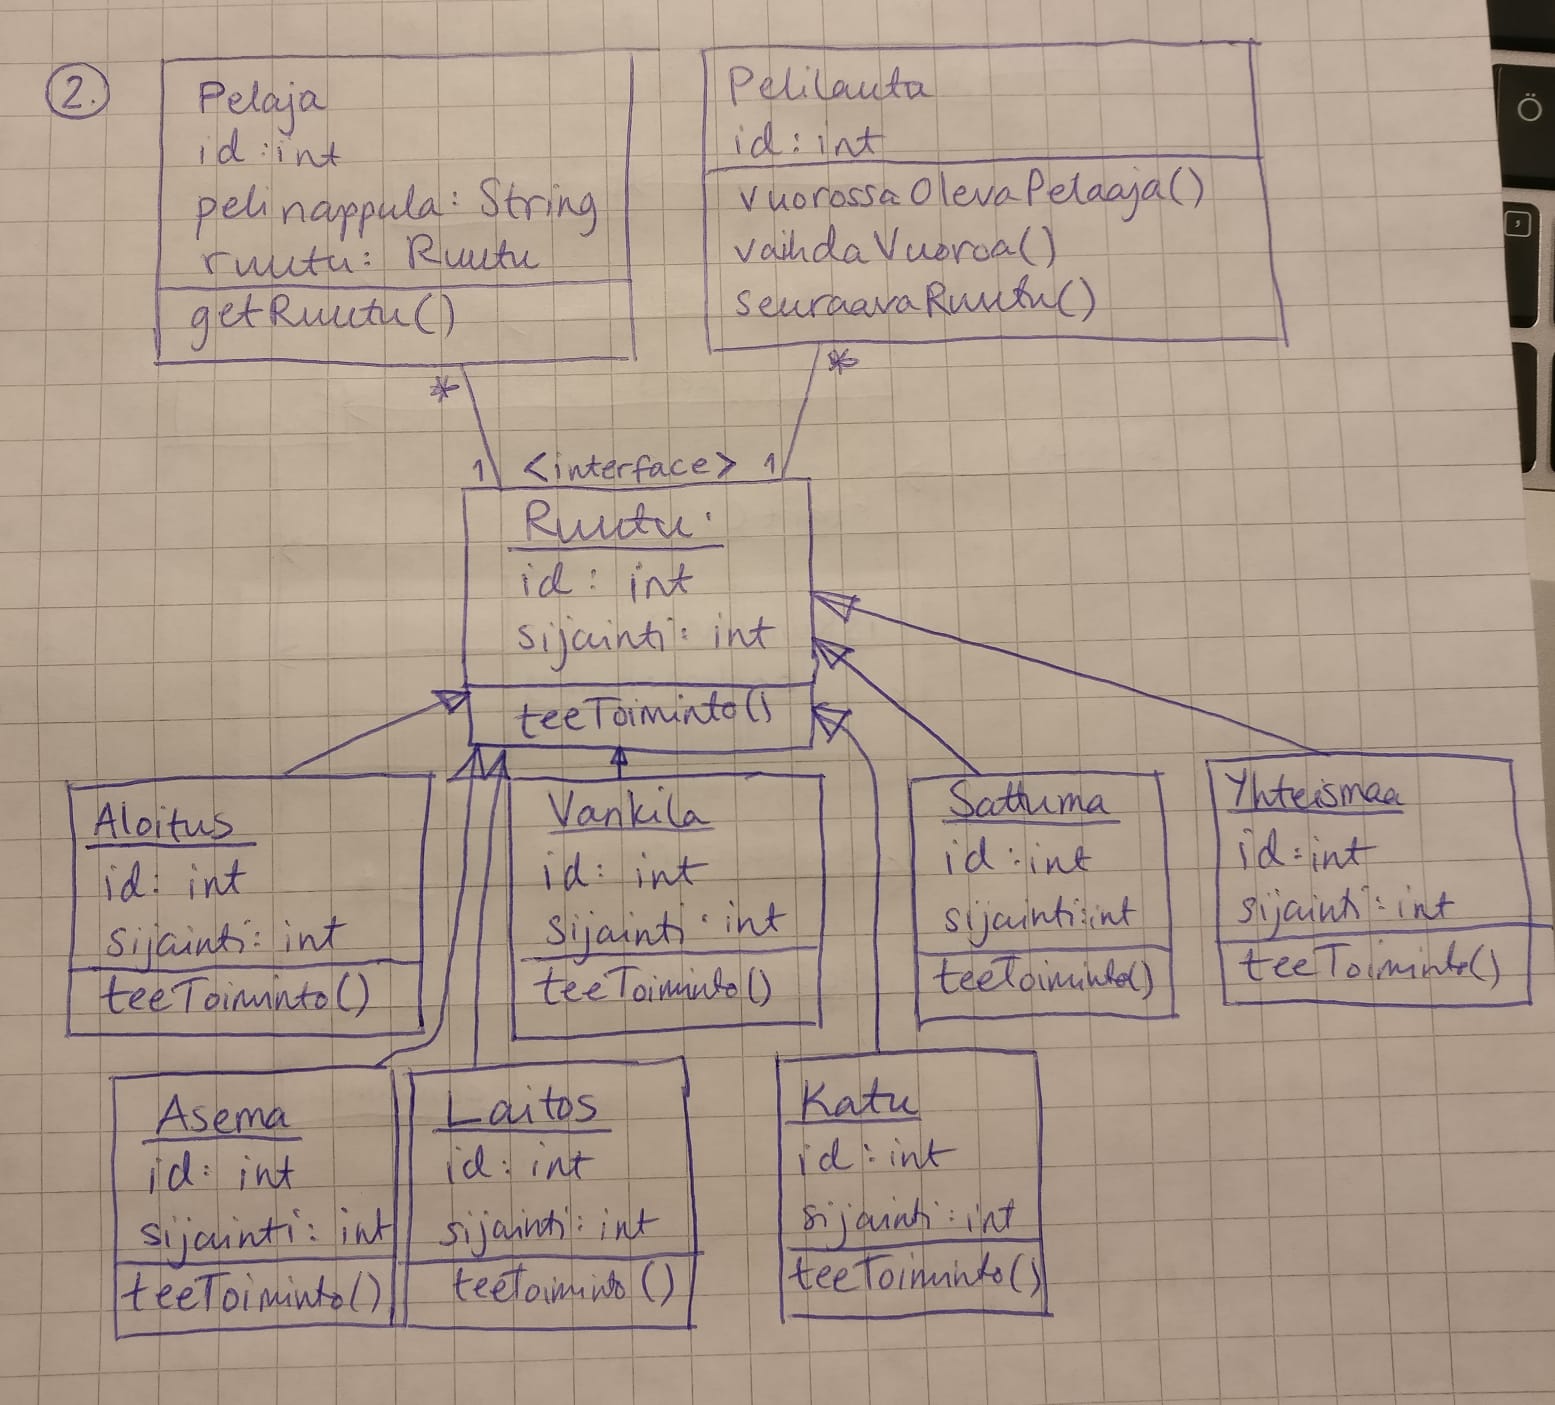 2.
Pelaja
id : int
pelinappula : String
ruutu : Ruutu
getRuutu()
Pelilauta
id : int
vuorossaOlevaPelaaja()
vaihdaVuoroa()
seuraavaRuutu()
*
*
1 <interface> 1
Ruutu
id : int
sijainti : int
teeToiminto()
Aloitus
id : int
sijainti : int
teeToiminto()
Vankila
id : int
sijainti : int
teeToiminto()
Sattuma
id : int
sijainti : int
teeToiminto()
Yhteismaa
id : int
sijainti : int
teeToiminto()
Asema
id : int
sijainti : int
teeToiminto()
Laitos
id : int
sijainti : int
teeToiminto()
Katu
id : int
sijainti : int
teeToiminto()
Ö